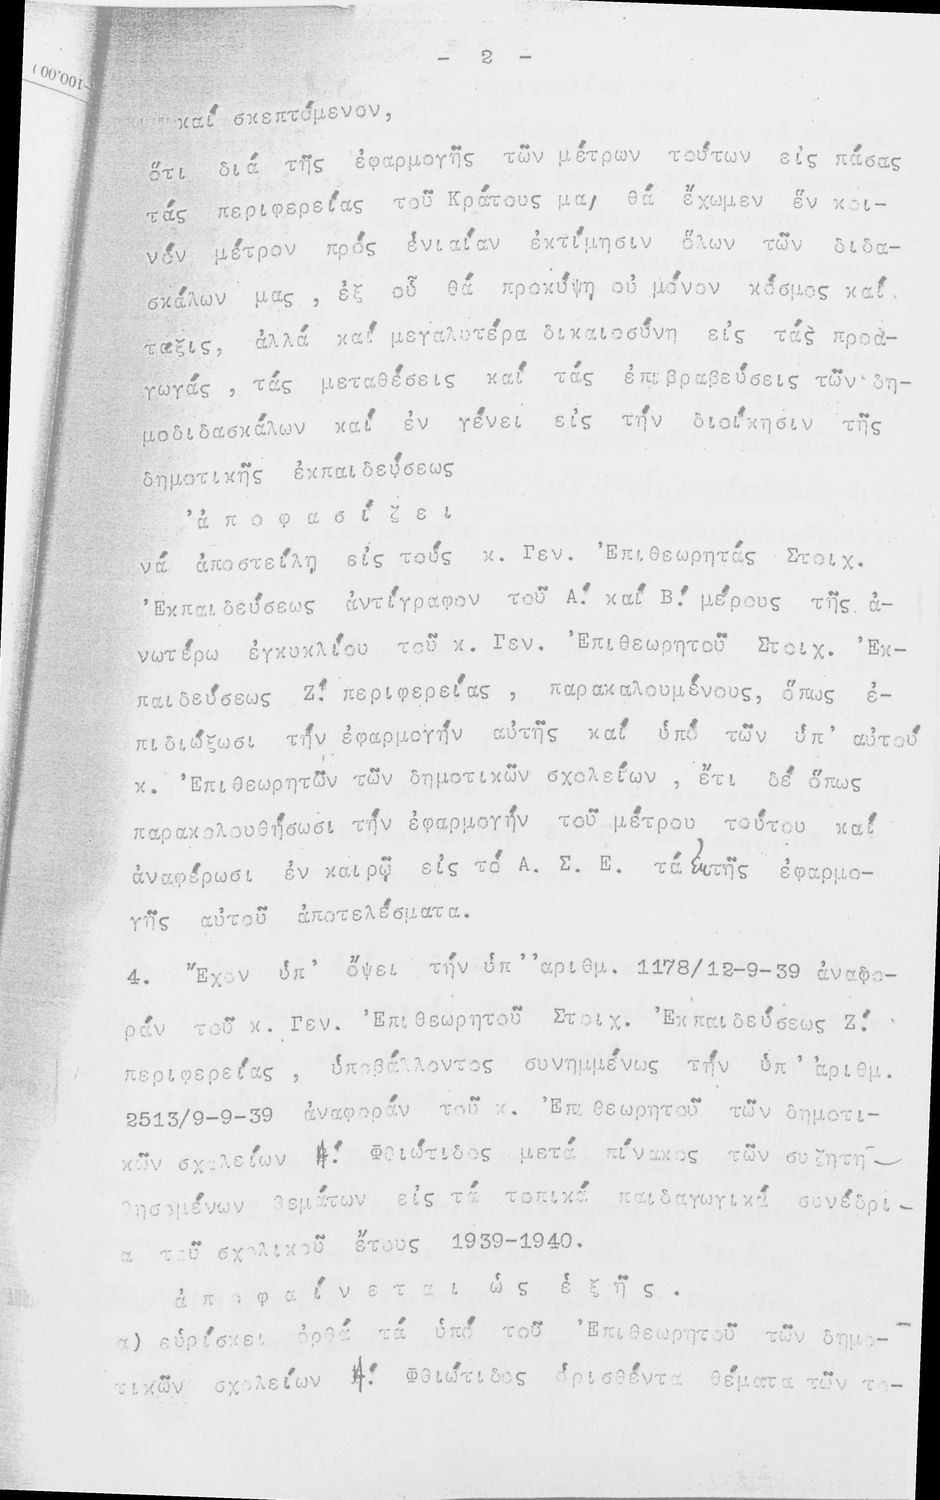 - 2 -
-100.00)
καί σκεπτόμενον,
ὅτι διά τῆς ἐφαρμογῆς τῶν μέτρων τούτων εἰς πάσας
τάς περιφερείας τοῦ Κράτους μας θά ἔχωμεν ἕν κοι-
νόν μέτρον πρός ἑνιαίαν ἐκτίμησιν ὅλων τῶν διδα-
σκάλων μας , ἐξ οὗ θά προκύψη οὐ μόνον κόσμος καί
ταξις, ἀλλά καί μεγαλυτέρα δικαιοσύνη εἰς τάς προα-
γωγάς , τάς μεταθέσεις καί τάς ἐπιβραβεύσεις τῶν δη-
μοδιδασκάλων καί ἐν γένει εἰς τήν διοίκησιν τῆς
δημοτικῆς ἐκπαιδεύσεως
ἀ π ο φ α σ ί ζ ε ι
νά ἀποστείλη εἰς τούς κ. Γεν. Ἐπιθεωρητάς Στοιχ.
Ἐκπαιδεύσεως ἀντίγραφον τοῦ Α! καί Β! μέρους τῆς ἀ-
νωτέρω ἐγκυκλίου τοῦ κ. Γεν. Ἐπιθεωρητοῦ Στοιχ. Ἐκ-
παιδεύσεως Ζ! περιφερείας , παρακαλουμένους, ὅπως ἐ-
πιδιώξωσι τήν ἐφαρμογήν αὐτῆς καί ὑπό τῶν ὑπ' αὐτού
κ. Ἐπιθεωρητῶν τῶν δημοτικῶν σχολείων , ἔτι δέ ὅπως
παρακολουθήσωσι τήν ἐφαρμογήν τοῦ μέτρου τούτου καί
ἀναφέρωσι ἐν καιρῷ εἰς τό Α. Σ. Ε. τά ἐκ τῆς ἐφαρμο-
γῆς αὐτοῦ ἀποτελέσματα.
4. Ἔχον ὑπ' ὄψει τήν ὑπ' ἀριθμ. 1178/12-9-39 ἀναφο-
ράν τοῦ κ. Γεν. Ἐπιθεωρητοῦ Στοιχ. Ἐκπαιδεύσεως Ζ!
περιφερείας , ὑποβάλλοντος συνημμένως τήν ὑπ' ἀριθμ.
2513/9-9-39 ἀναφοράν τοῦ κ. Ἐπιθεωρητοῦ τῶν δημοτι-
κῶν σχολείων Φθιώτιδος μετά πίνακος τῶν συζητη-
θησομένων θεμάτων εἰς τά τοπικά παιδαγωγικά συνέδρι-
α τοῦ σχολικοῦ ἔτους 1939-1940.
ἀ π ο φ α ί ν ε τ α ι ὡ ς ἑ ξ ῆ ς .
α) εὑρίσκει ὀρθά τά ὑπό τοῦ Ἐπιθεωρητοῦ τῶν δημο-
τικῶν σχολείων Φθιώτιδος ὁρισθέντα θέματα τῶν το-